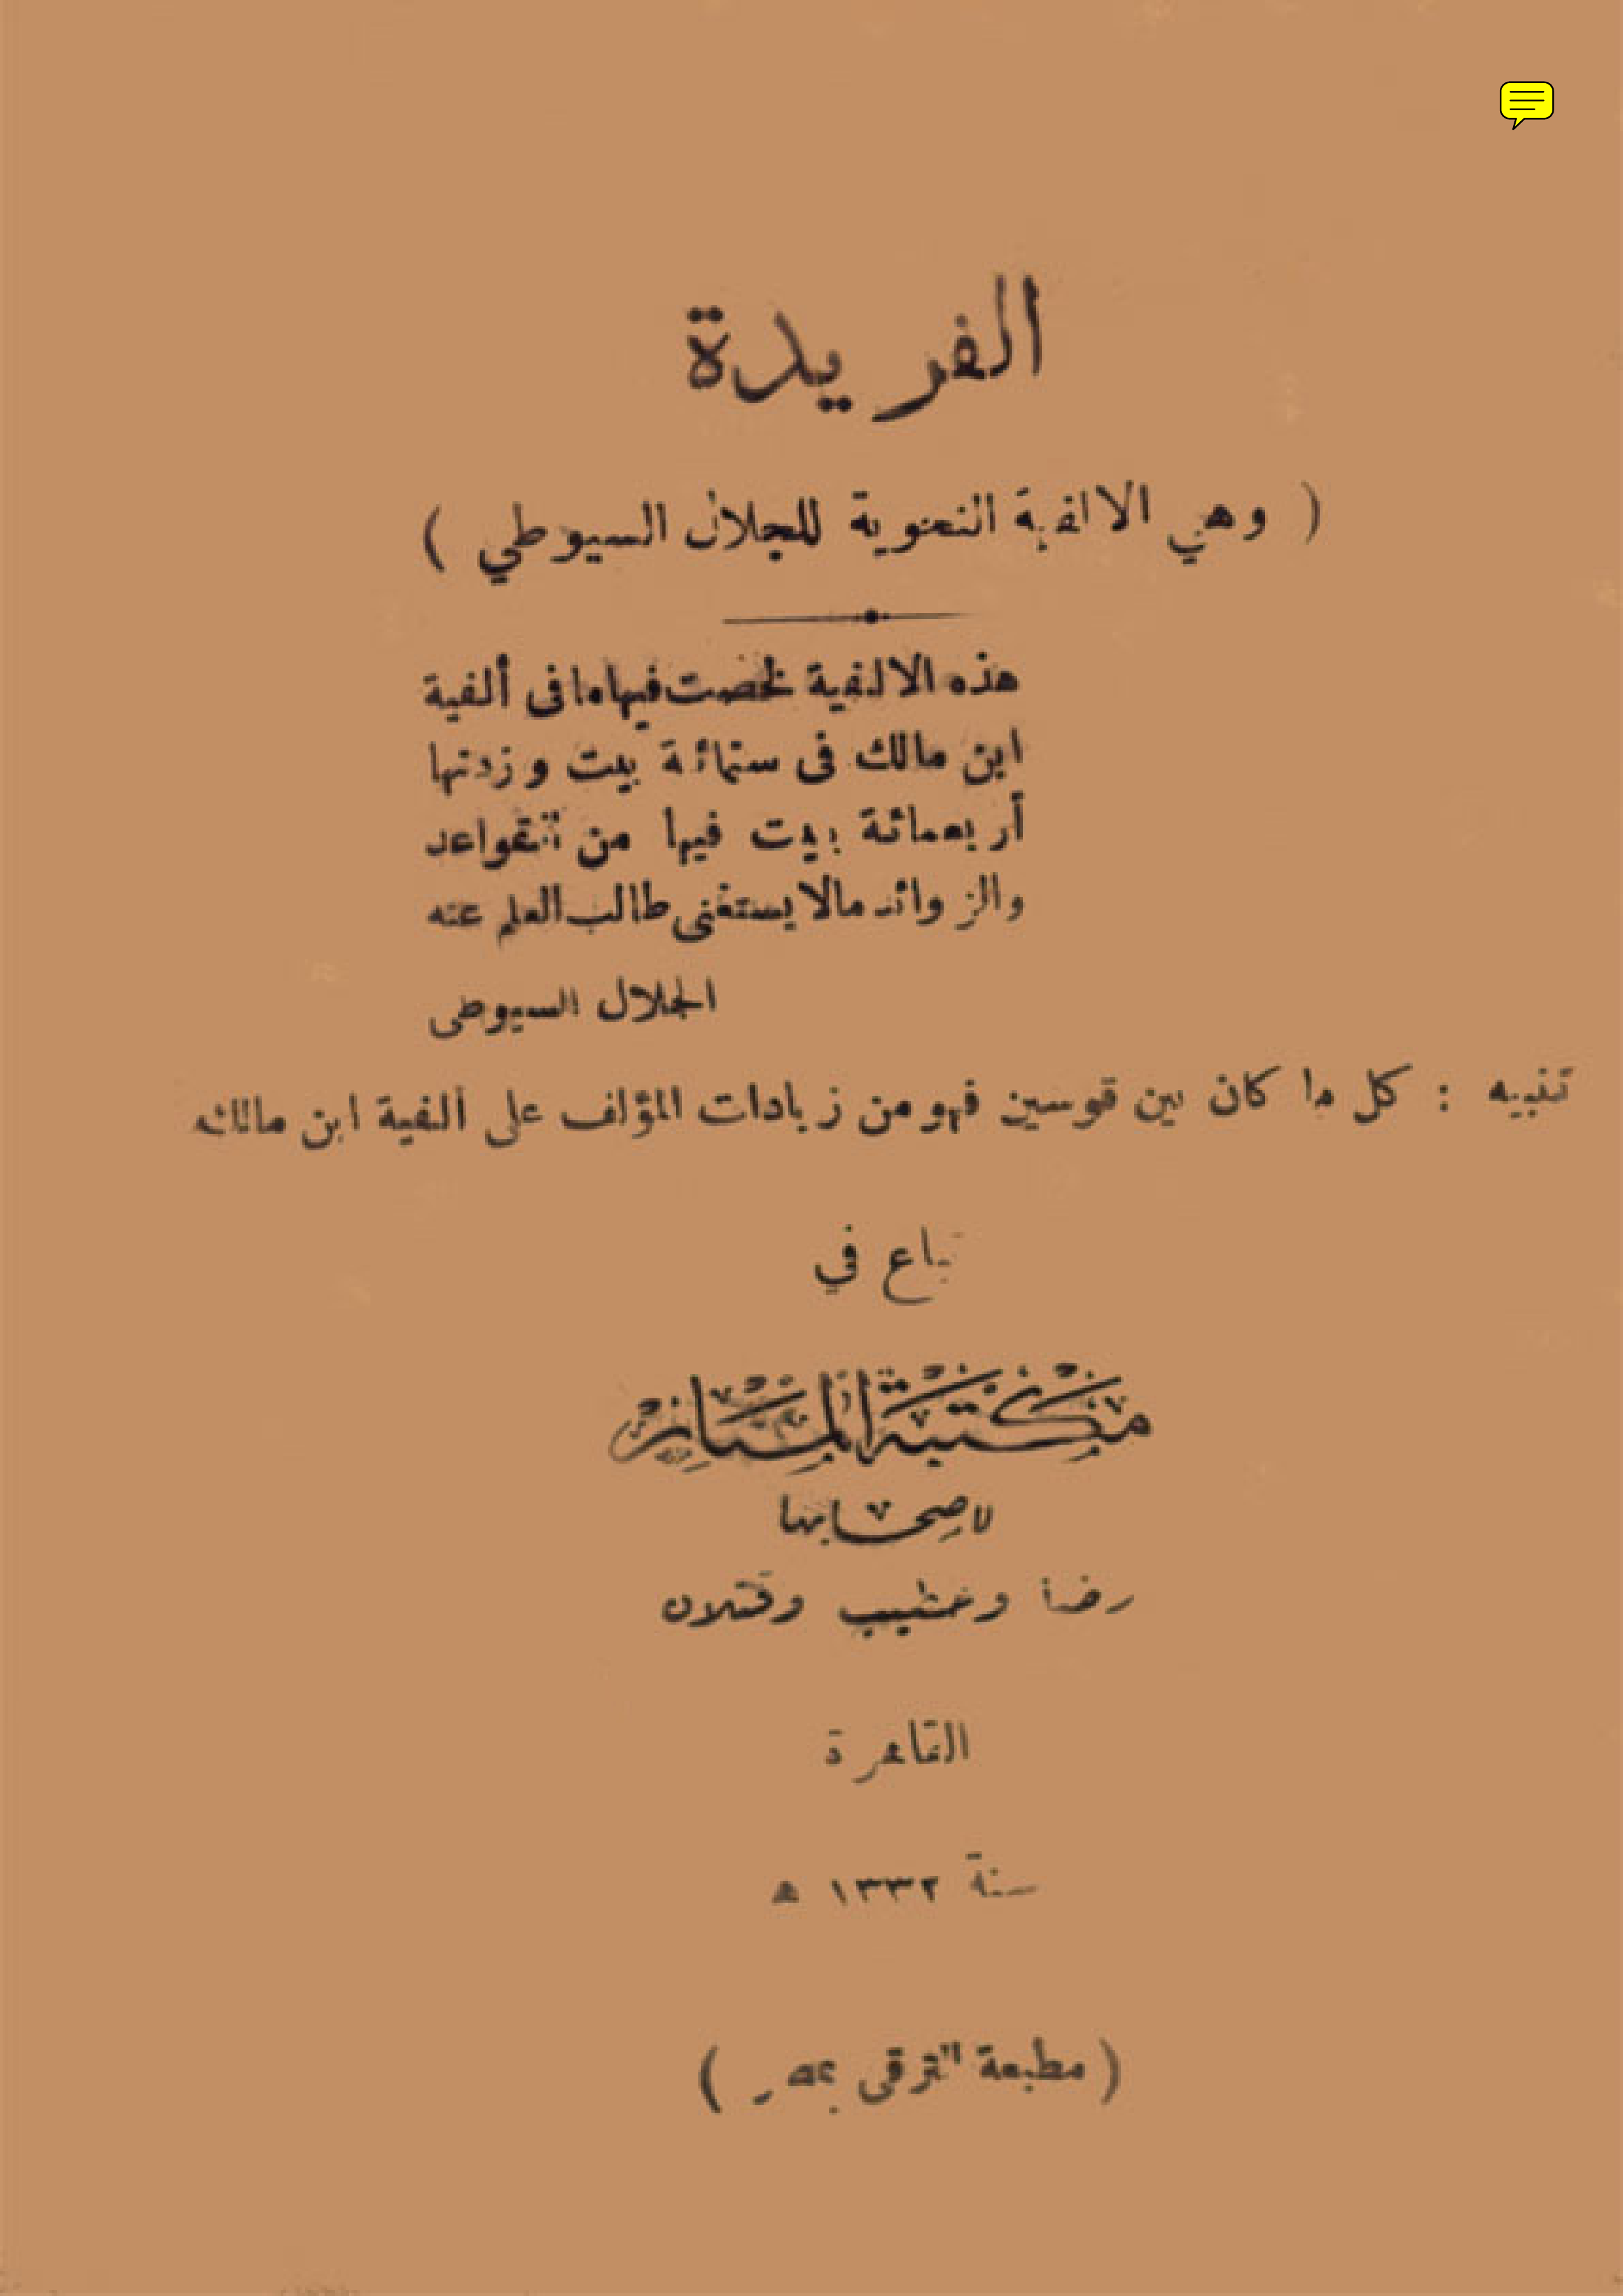 الفريدة
( وهي الالفية النحوية للجلال السيوطي )
هذه الالفية لخصت فيها ما فى ألفية
ابن مالك فى ستمائة بيت وزدتها
أربعمائة بيت فيها من القواعد
والزوائد مالا يستغنى طالب العلم عنه
الجلال السيوطى
تنبيه : كل ما كان بين قوسين فهو من زيادات المؤلف على ألفية ابن مالك
تباع في
مكتبة المنار
لاصحابها
رضا وخطيب وقتلان
القاهرة
سنة ١٣٣٢ ه
( مطبعة الترقى بمصر )